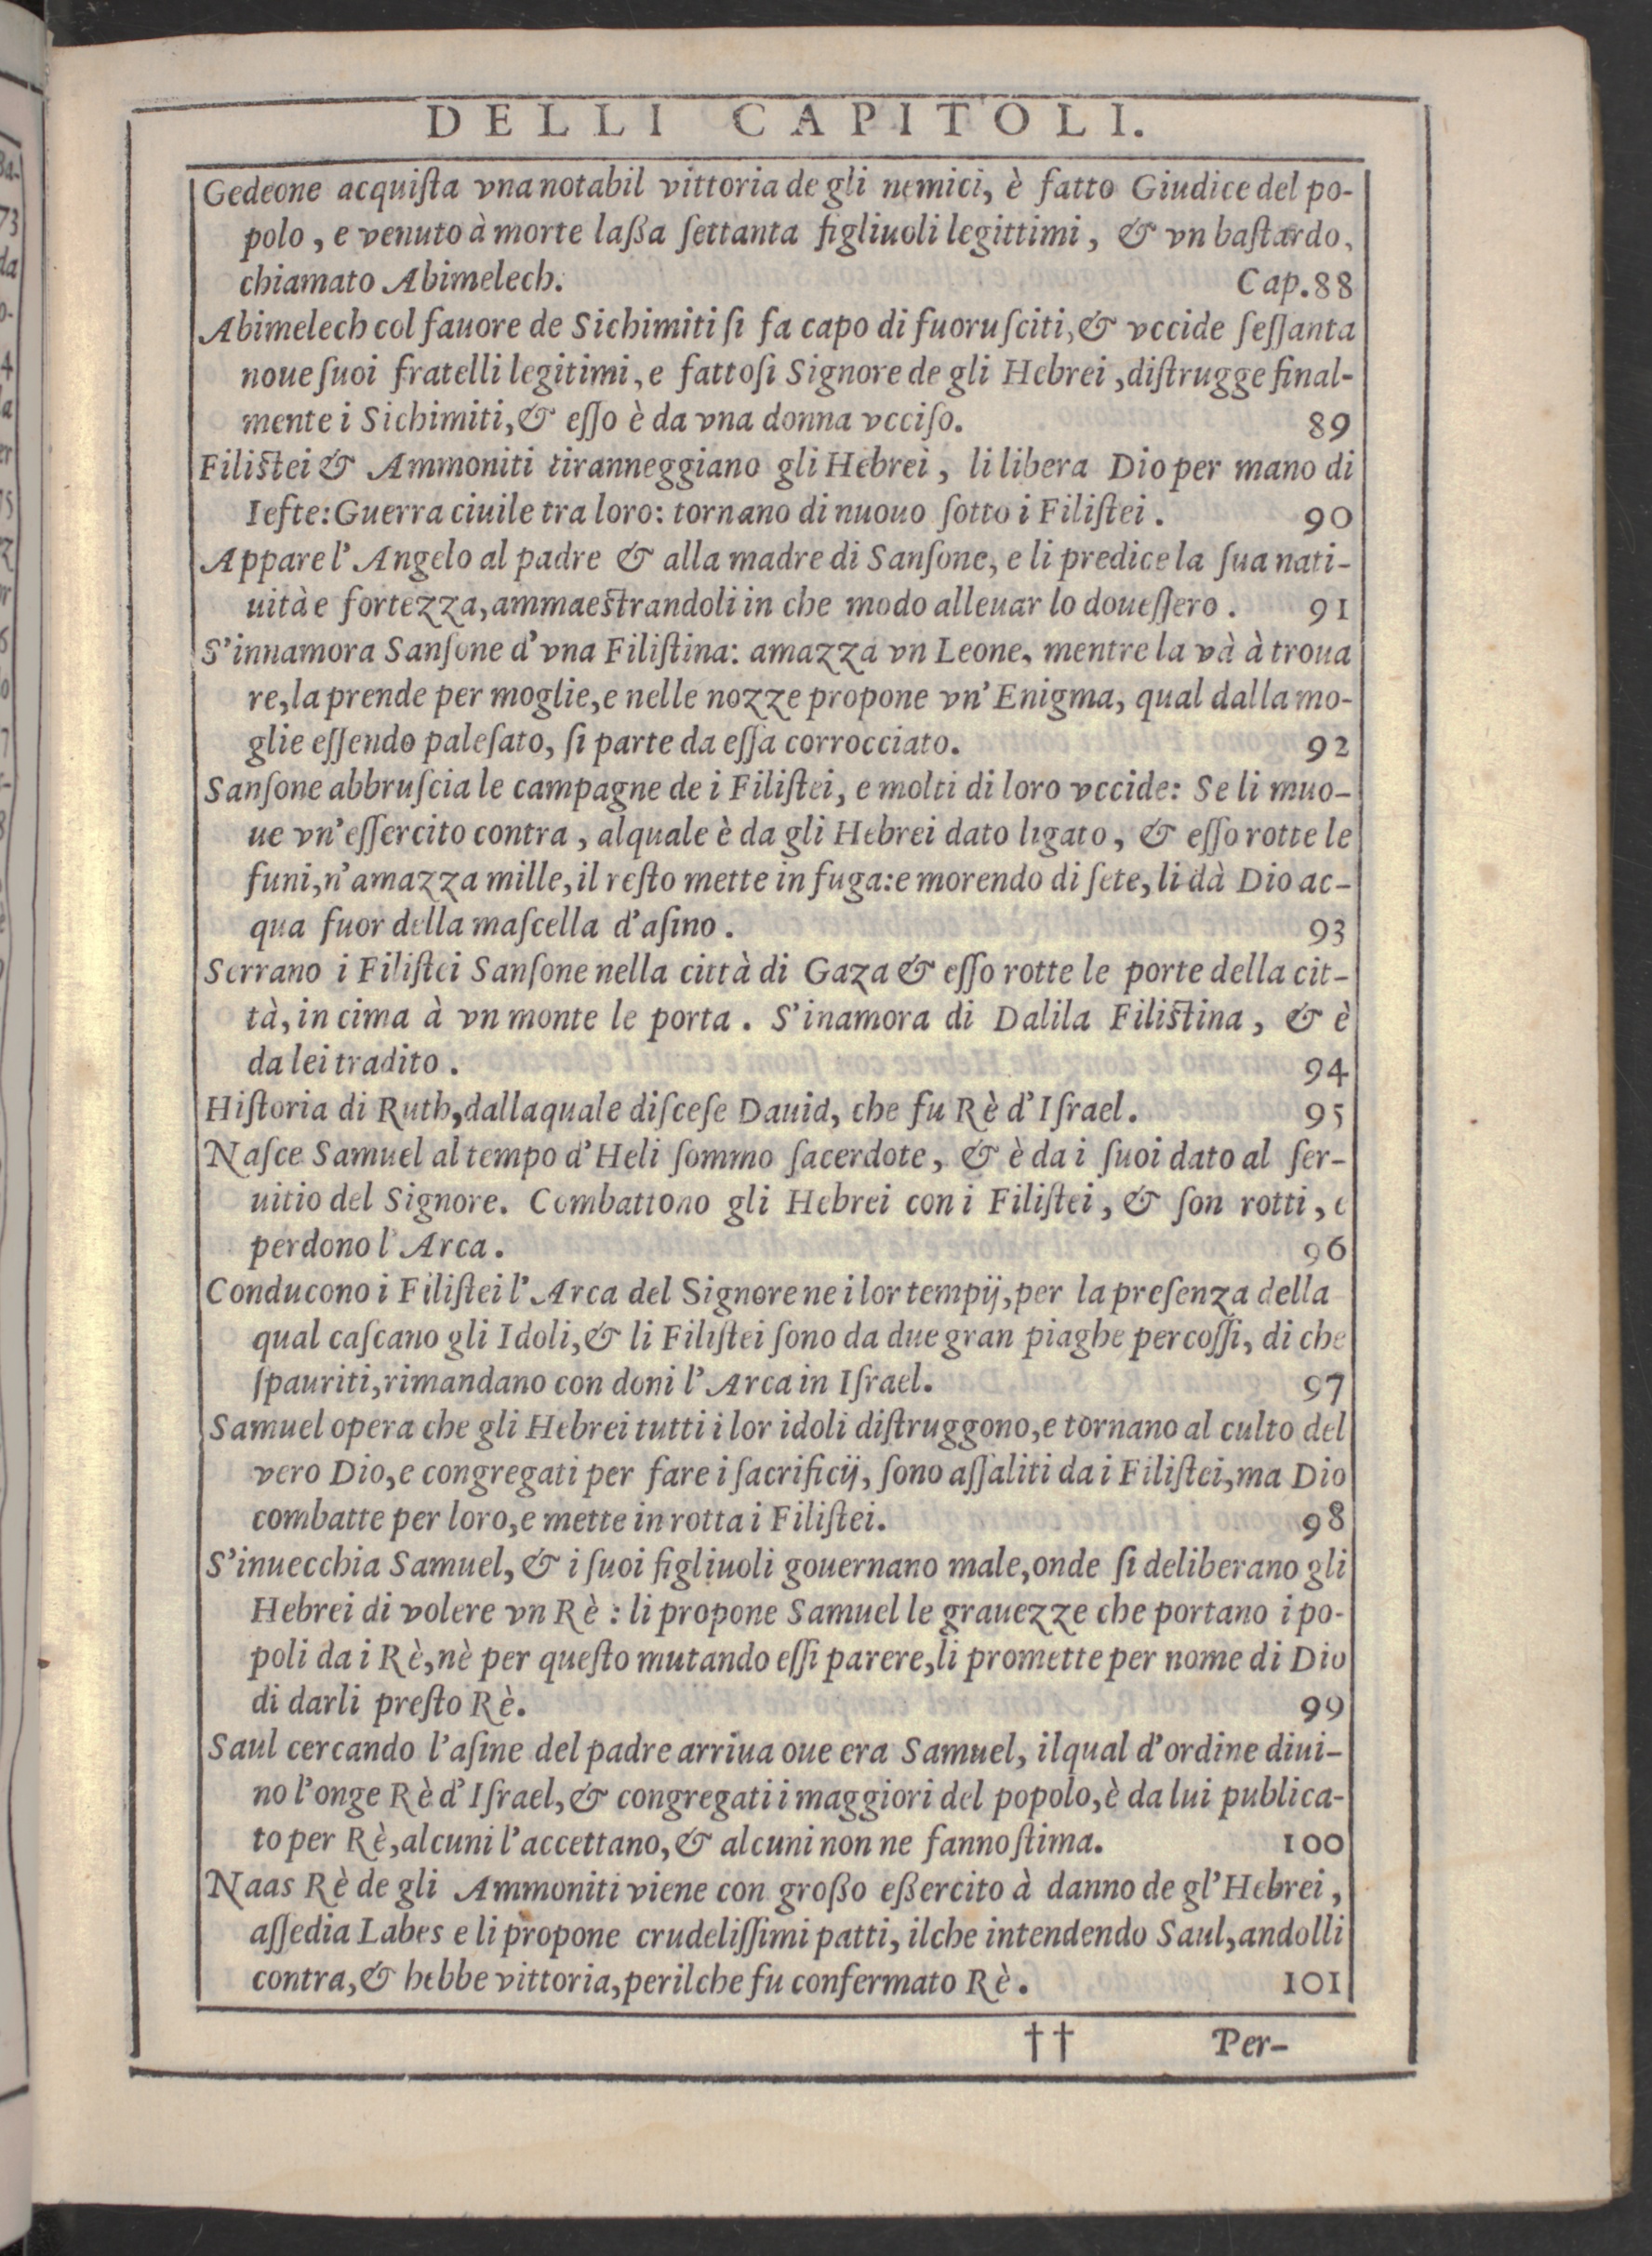 DELLI CAPITOLI.
Gedeone acquiſta vna notabil vittoria de gli nemici, è fatto Giudice del po-
polo, e venuto à morte laßa ſettanta figliuoli legittimi, & vn baſtardo,
chiamato Abimelech. Cap.88
Abimelech col fauore de Sichimiti ſi fa capo di fuoruſciti, & vccide ſeſſanta
noue ſuoi fratelli legitimi, e fattoſi Signore de gli Hebrei, diſtrugge final-
mente i Sichimiti, & eſſo è da vna donna vcciſo. 89
Filiſtei & Ammoniti tiranneggiano gli Hebrei, li libera Dio per mano di
Iefte: Guerra ciuile tra loro: tornano di nuouo ſotto i Filiſtei. 90
Appare l'Angelo al padre & alla madre di Sanſone, e li predice la ſua nati-
uità e fortezza, ammaeſtrandoli in che modo alleuar lo doueſſero. 91
S'innamora Sanſone d'vna Filiſtina: amazza vn Leone, mentre la và à troua
re, la prende per moglie, e nelle nozze propone vn'Enigma, qual dalla mo-
glie eſſendo paleſato, ſi parte da eſſa corrocciato. 92
Sanſone abbruſcia le campagne de i Filiſtei, e molti di loro vccide: Se li muo-
ue vn'eſſercito contra, alquale è da gli Hebrei dato ligato, & eſſo rotte le
funi, n'amazza mille, il reſto mette in fuga: e morendo di ſete, li dà Dio ac-
qua fuor della maſcella d'aſino. 93
Serrano i Filiſtei Sanſone nella città di Gaza & eſſo rotte le porte della cit-
tà, in cima à vn monte le porta. S'inamora di Dalila Filiſtina, & è
da lei tradito. 94
Hiſtoria di Ruth, dallaquale diſceſe Dauid, che fu Rè d'Iſrael. 95
Naſce Samuel al tempo d'Heli ſommo ſacerdote, & è da i ſuoi dato al ſer-
uitio del Signore. Combattono gli Hebrei con i Filiſtei, & ſon rotti, e
perdono l'Arca. 96
Conducono i Filiſtei l'Arca del Signore ne i lor tempij, per la preſenza della
qual caſcano gli Idoli, & li Filiſtei ſono da due gran piaghe percoſſi, di che
ſpauriti, rimandano con doni l'Arca in Iſrael. 97
Samuel opera che gli Hebrei tutti i lor idoli diſtruggono, e tornano al culto del
vero Dio, e congregati per fare i ſacrificij, ſono aſſaliti da i Filiſtei, ma Dio
combatte per loro, e mette in rotta i Filiſtei. 98
S'inuecchia Samuel, & i ſuoi figliuoli gouernano male, onde ſi deliberano gli
Hebrei di volere vn Rè: li propone Samuel le grauezze che portano i po-
poli da i Rè, nè per queſto mutando eſſi parere, li promette per nome di Dio
di darli preſto Rè. 99
Saul cercando l'aſine del padre arriua oue era Samuel, ilqual d'ordine diui-
no l'onge Rè d'Iſrael, & congregati i maggiori del popolo, è da lui publica-
to per Rè, alcuni l'accettano, & alcuni non ne fanno ſtima. 100
Naas Rè de gli Ammoniti viene con großo eßercito à danno de gl'Hebrei,
aſſedia Labes e li propone crudeliſſimi patti, ilche intendendo Saul, andolli
contra, & hebbe vittoria, perilche fu confermato Rè. 101
†† Per-